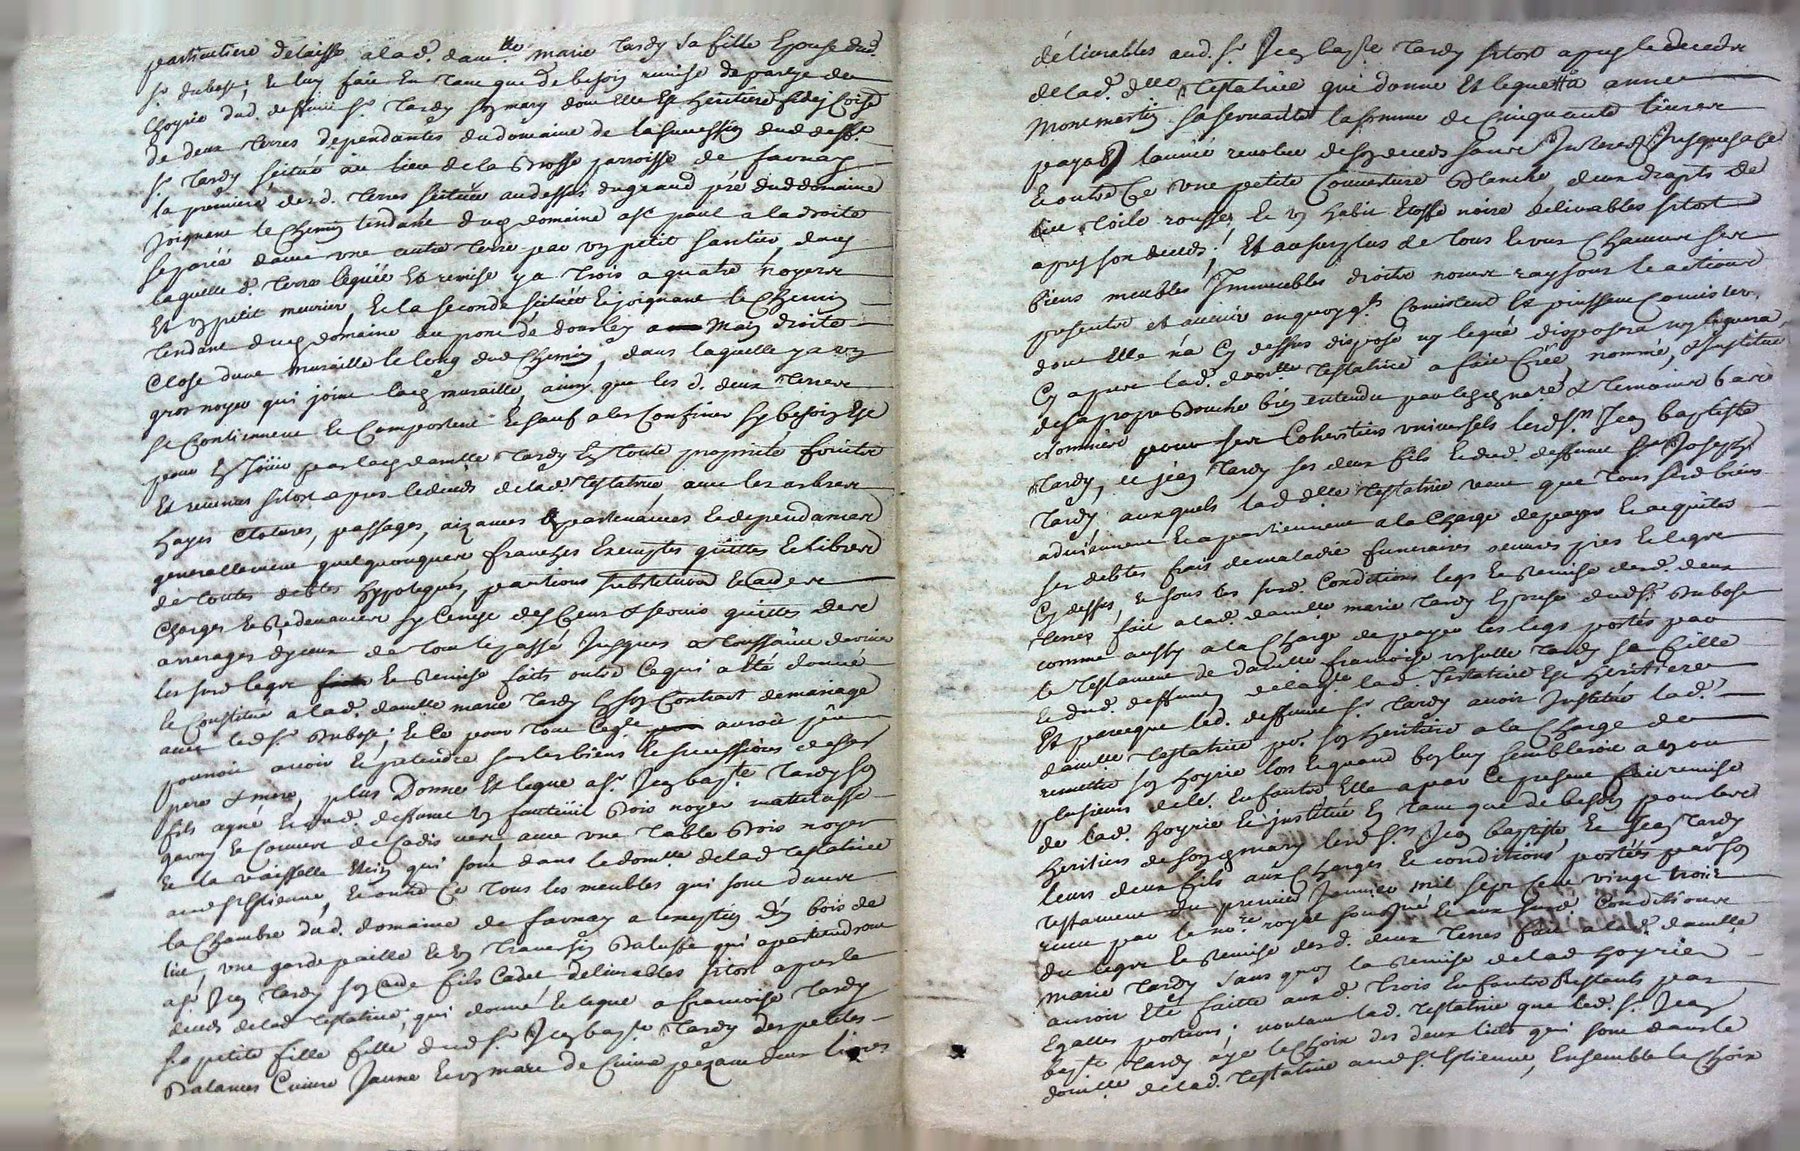 particuliere delaisse a lad. dam.lle marie Tardy sa fille Epouse dud.
sr. dubost; Et luy fait En tant que de besoin remise de partye de
lhoyrie dud. deffunt sr. Tardy son mary dont Elle Est heritiere
de deux terres dependantes du domaine de la succession dud deff.t
sr Tardy scitué au lieu de la Brosse parroisse de favnay
la premiere desd. terres scituée audessus du grand pré dud domaine
joignant le chemin tendant dud domaine a paul a la droite
separée dauec vne autre terre par vn petit santier, dans
laquelle d. terre leguée Et remise y a trois a quatre noyers
Et vn petit murier, Et la seconde scituée Et joignant le chemin
tendant dud domaine au pont de a main droite
close dune muraille le long dud chemin, dans laquelle y a vn
gros noyer qui joint lad muraille, ainsy que les d. deux terres
se Contiennent Et Comportent Et sauf a les Confiner sy besoin Est
pour En jouir par lad damlle Tardy En toute propriete fruits
Et reuenus sitost apres le deceds de lad. testatrice, auec les arbres
hayes clotures, passages, aizances appartenances Et dependances
generallement quelquonques franches Exemptes quittes Et libres
de toutes debtes hyppoteques, pentions substitution Et autres
charges Et Redeuances sy ce nest des Cens & seruis quittes des
arrerages dyceux de tout le passé jusques a toussaint dernier
les susd legs Et Remise faits outre ce qui a Eté donné
Et Constitué a lad. damlle marie Tardy En son Contract de mariage
auec led sr. Dubost; Et ce pour tout ce auroit peu
pouuoir auoir Et pretendre sur les biens Et successions de ses
pere & mere, plus Donne Et legue a sr. Jean bapte. Tardy son
fils ayné Et dud. deffunt vn fauteuil Bois noyer mattelassé
garny Et couuert de Cadis vert, auec vne table Bois noyer
Et la vaisselle qui sont dans le domlle de lad testatrice
aud st Etienne, Et outre ce tous les meubles qui sont dans
la chambre dud. domaine de favnay a exeption dun bois de
lit, vne garde paille Et vn Trauersin Balusse qui apartiendront
a sr Jean Tardy son fils Cadet deliurables sitost apres le
deceds de lad testatrice, qui donne Et legue a francoise Tardy
sa petite fille fille dud sr. Jean bapte. Tardy des petites
Balances Cuiure Jaune Et vn marc de Cuiure pezant deux liures
déliurables aud. sr. Jean bapte. Tardy sitost apres le deceds
de lad. dlle. Testatrice qui donne Et legue a anne
Montmartin sa seruante la somme de Cinquante liures
payable lannée reuolue de son deceds sans Interest Jusques a ce
Et outre ce vne petite Couuerture Blanche, deux drapts de
lit toile rousse, Et vn habit Etoffe noire deliurables sitost
apres son deceds; Et au surplus de tous Et vns chacuns ses
biens meubles Immeubles droits noms raysons Et actions
presents et auenir en quoy qls Consistent Et puissent Consister,
dont Elle na cy dessus disposé ny legué disposera ny leguera
cy apres lad. damlle Testatrice a fait Créé, nommé, & Institué
de sa propre Bouche bien entendu par les & temoins
nommés pour ses Coheritiers vniuersels lesd. srs Jean baptiste
Tardy, et jean Tardy ses deux fils Et dud. deffunt sr Joseph
Tardy, auxquels lad dlle testatrice veut que tous sesd biens
aduiennent Et apartiennent a la Charge de payer Et acquiter
ses debtes frais de maladie funeraires oeuures pies Et legs
cy dessus, Et sous les susd. Conditions legs Et Remise desd. deux
terres fait a lad. damlle marie Tardy Epouse dud sr. Dubost
comme aussy a la Charge de payer les legs portés par
le testament de damlle francoise vrsulle Tardy sa fille
Et dud. deffunt de laqlle. lad. Testatrice Est heritiere
Et parceque led. deffunt sr. Tardy auroit Institué lad.
damlle testatrice pr. son heritiere a la Charge de
remettre son hoyrie lors Et quand bon luy sembleroit a vn ou
plusieurs de leurs Enfants Elle a par ce present fait remise
de lad. hoyrie Et institué En tant que de besoin pour les
heritiers de son d mary lesd srs Jean baptiste Et Jean Tardy
leurs deux fils aux charges Et conditions portées par son
testament du premier Januier mil sept cent vingt trois
reçeu par le nore. royal soussigné Et aux susd. Conditions
du legs Et Remise desd. deux terres fait a lad. damlle.
marie Tardy sans quoy la Remise de lad hoyrie
auroit Eté faitte auxd. trois Enfants Restants par
Egalles portions; voulant lad. testatrice que led. sr. Jean
bapte. Tardy aye le choix des deux lits qui sont dans le
domlle de lad. testatrice aud st Etienne, Ensemble le choix